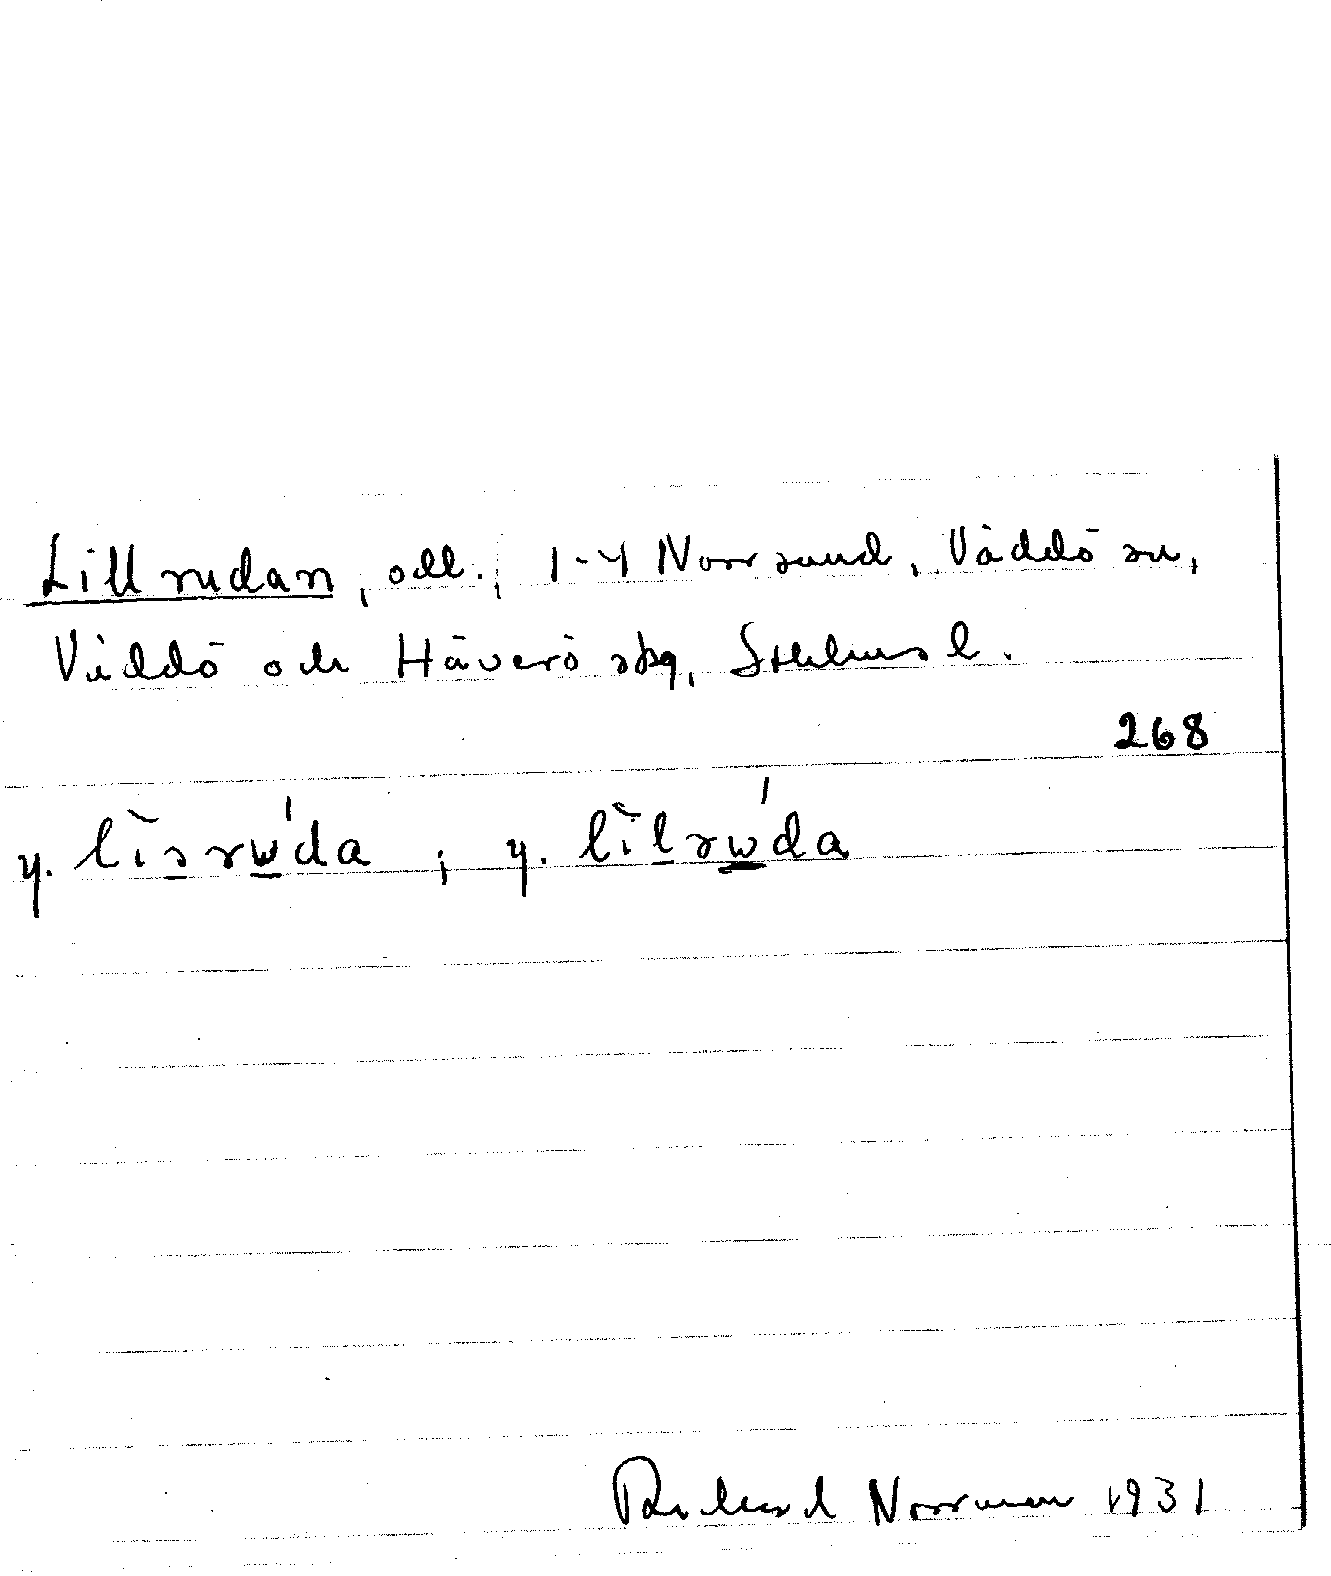 Lillrudan, odl., 1-4 Norrsund, Väddö sn,
Väddö och Häverö skg, Sthlms l.
268
y. lìsrẃda ; y. lìlrẃda
Norrman 1931